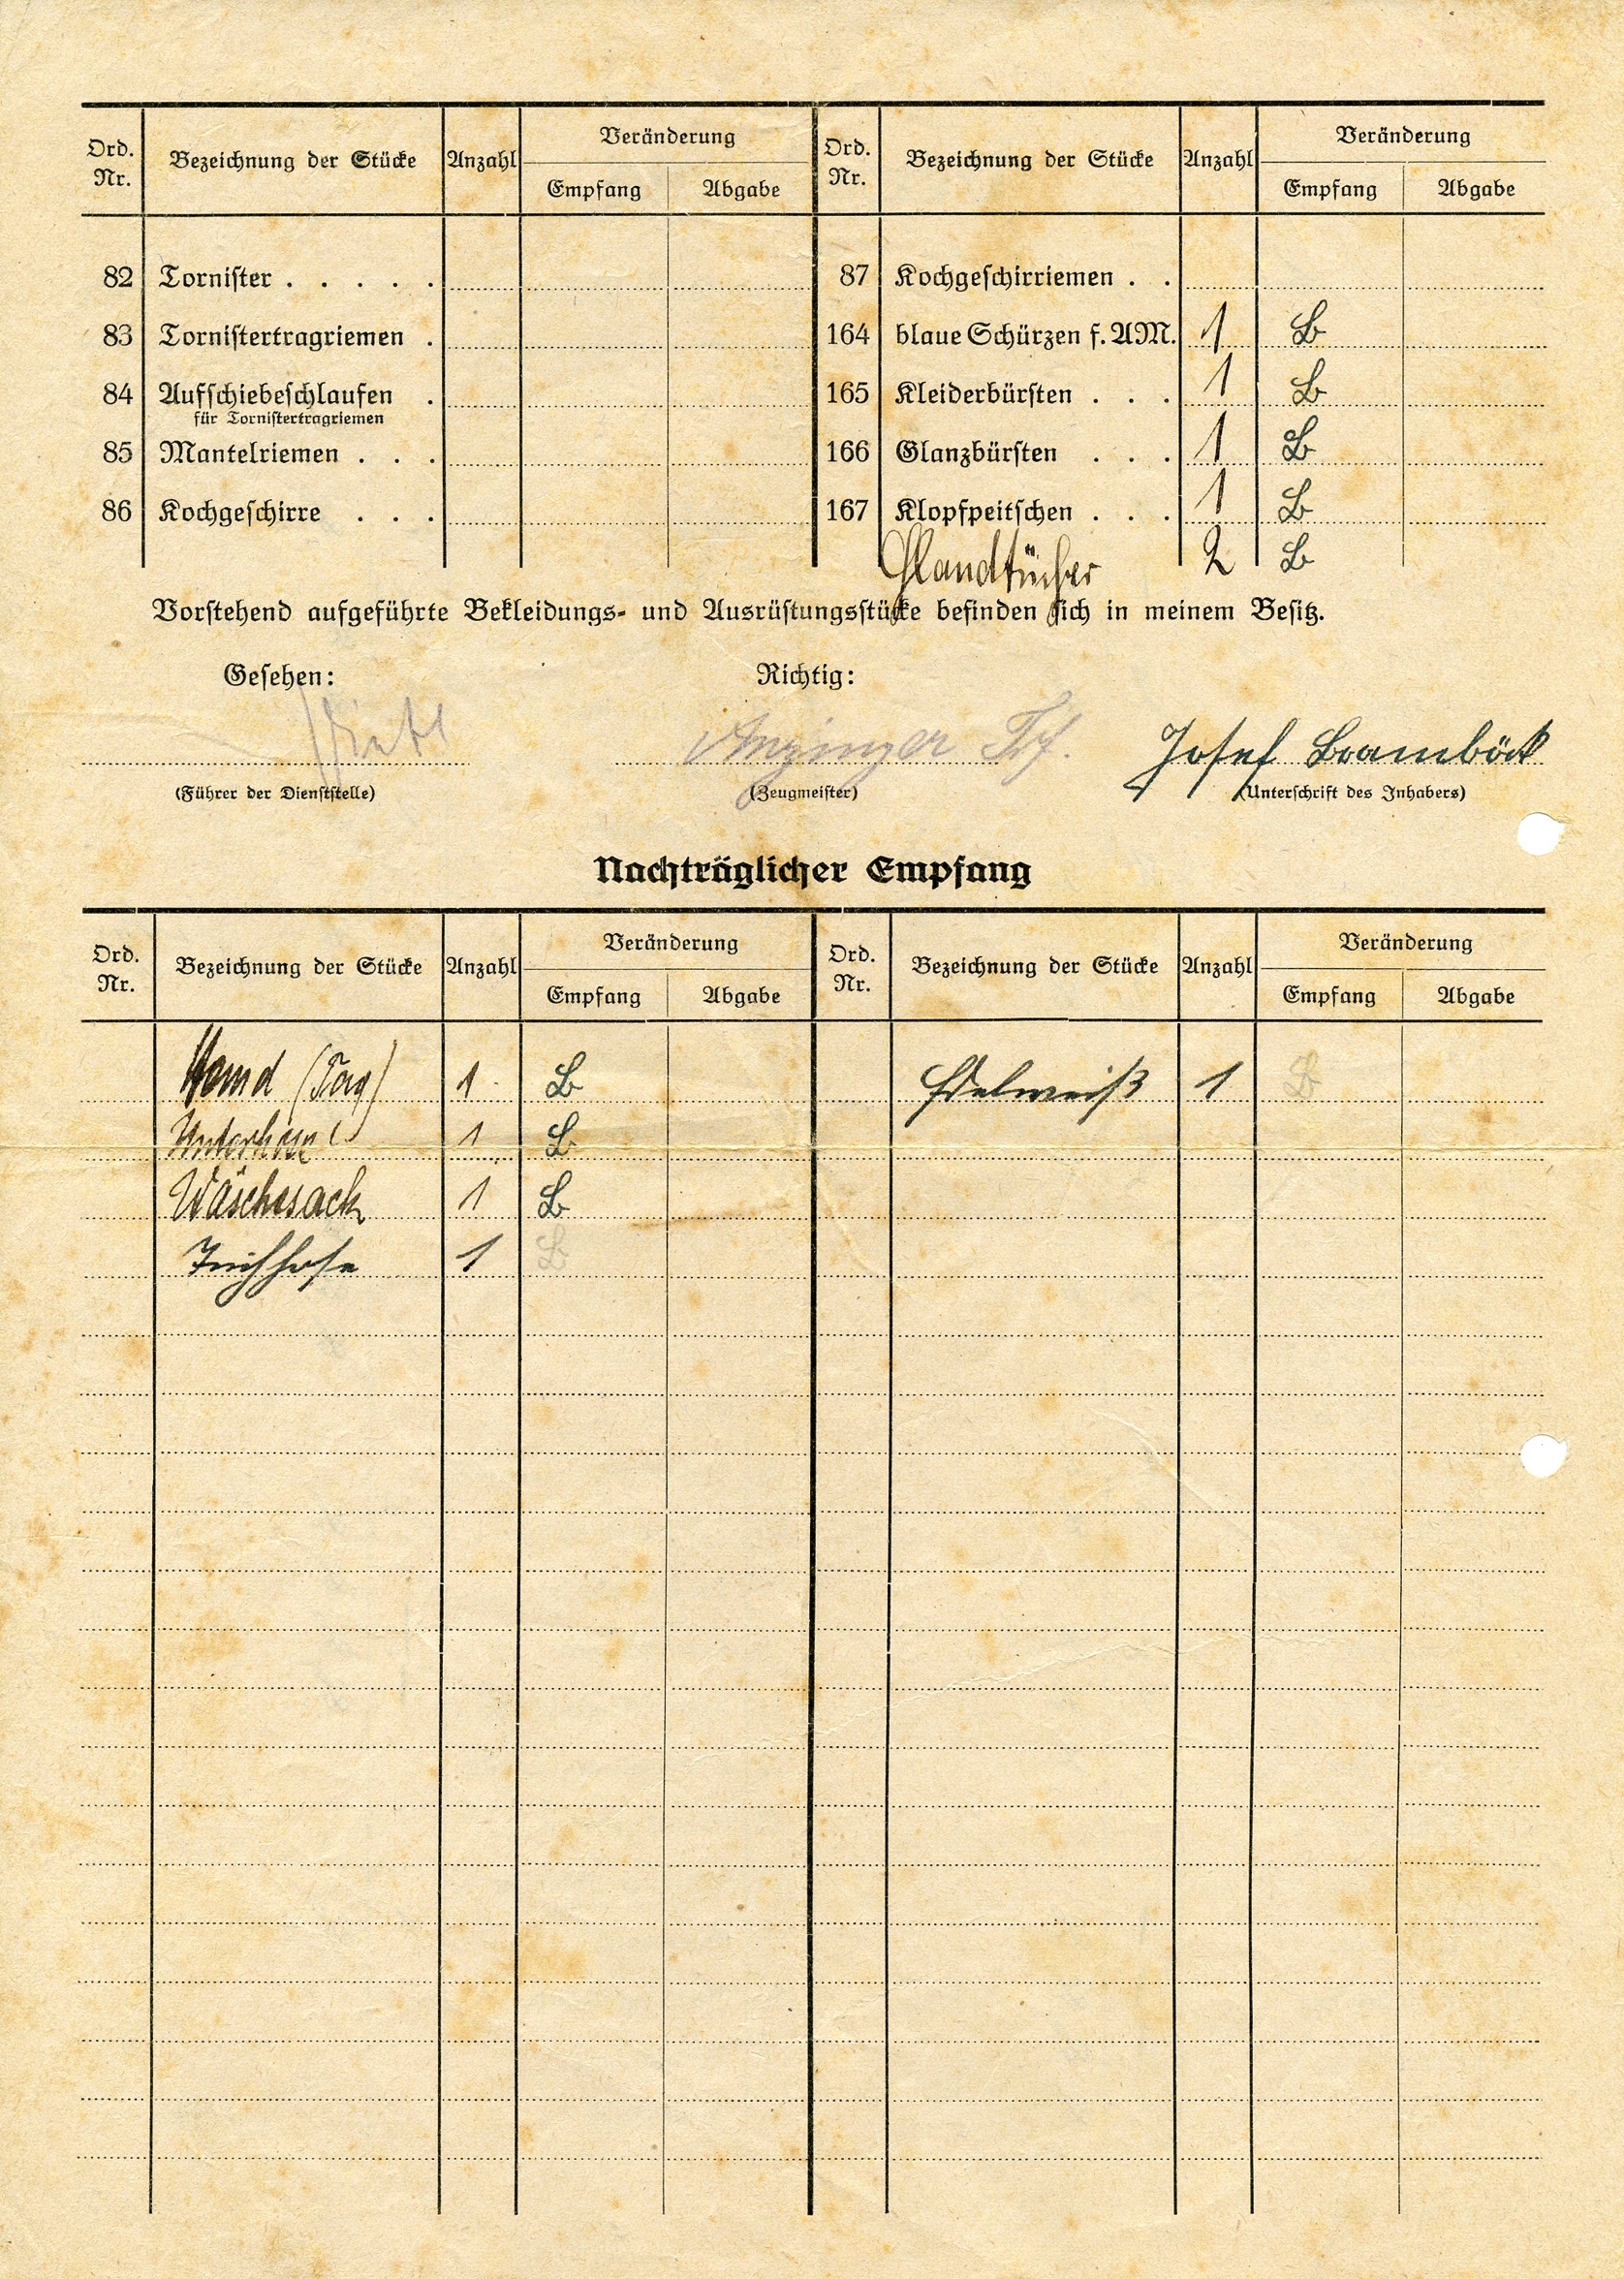 Ord. Nr. Bezeichnung der Stücke Anzahl Veränderung Empfang Abgabe Ord. Nr. Bezeichnung der Stücke Anzahl Veränderung Empfang Abgabe
82 Tornister . . . . . 87 Kochgeschirriemen . .
83 Tornistertragriemen . 164 blaue Schürzen f. AM. 1 B
84 Aufschiebeschlaufen . 165 Kleiderbürsten . . . 1 B
für Tornistertragriemen
85 Mantelriemen . . . 166 Glanzbürsten . . . 1 B
86 Kochgeschirre . . . 167 Klopfpeitschen . . . 1 B
Handtücher 2 B
Vorstehend aufgeführte Bekleidungs- und Ausrüstungsstücke befinden sich in meinem Besitz.
Gesehen: Richtig:
Anzinger Josef Bramböck
(Führer der Dienststelle) (Zeugmeister) (Unterschrift des Inhabers)
Nachträglicher Empfang
Ord. Nr. Bezeichnung der Stücke Anzahl Veränderung Empfang Abgabe Ord. Nr. Bezeichnung der Stücke Anzahl Veränderung Empfang Abgabe
Hemd (Tag) 1 B Edelweiß 1 B
Unterhose 1 B
Wäschesack 1 B
Tuchhose 1 B